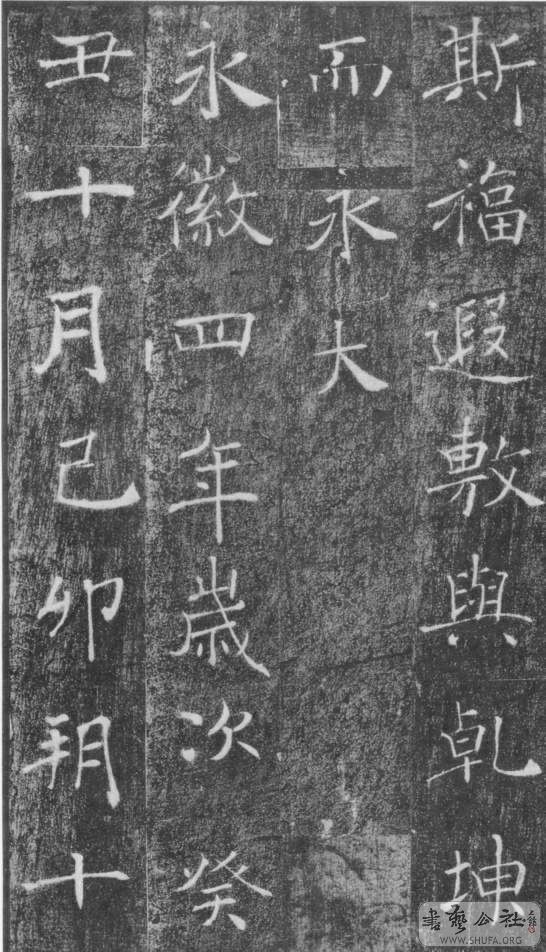 斯福遐敷與乹坤
而永大
永徽四年歲次癸
丑十月己卯朔十
書藝公社
WWW.SHUFA.ORG